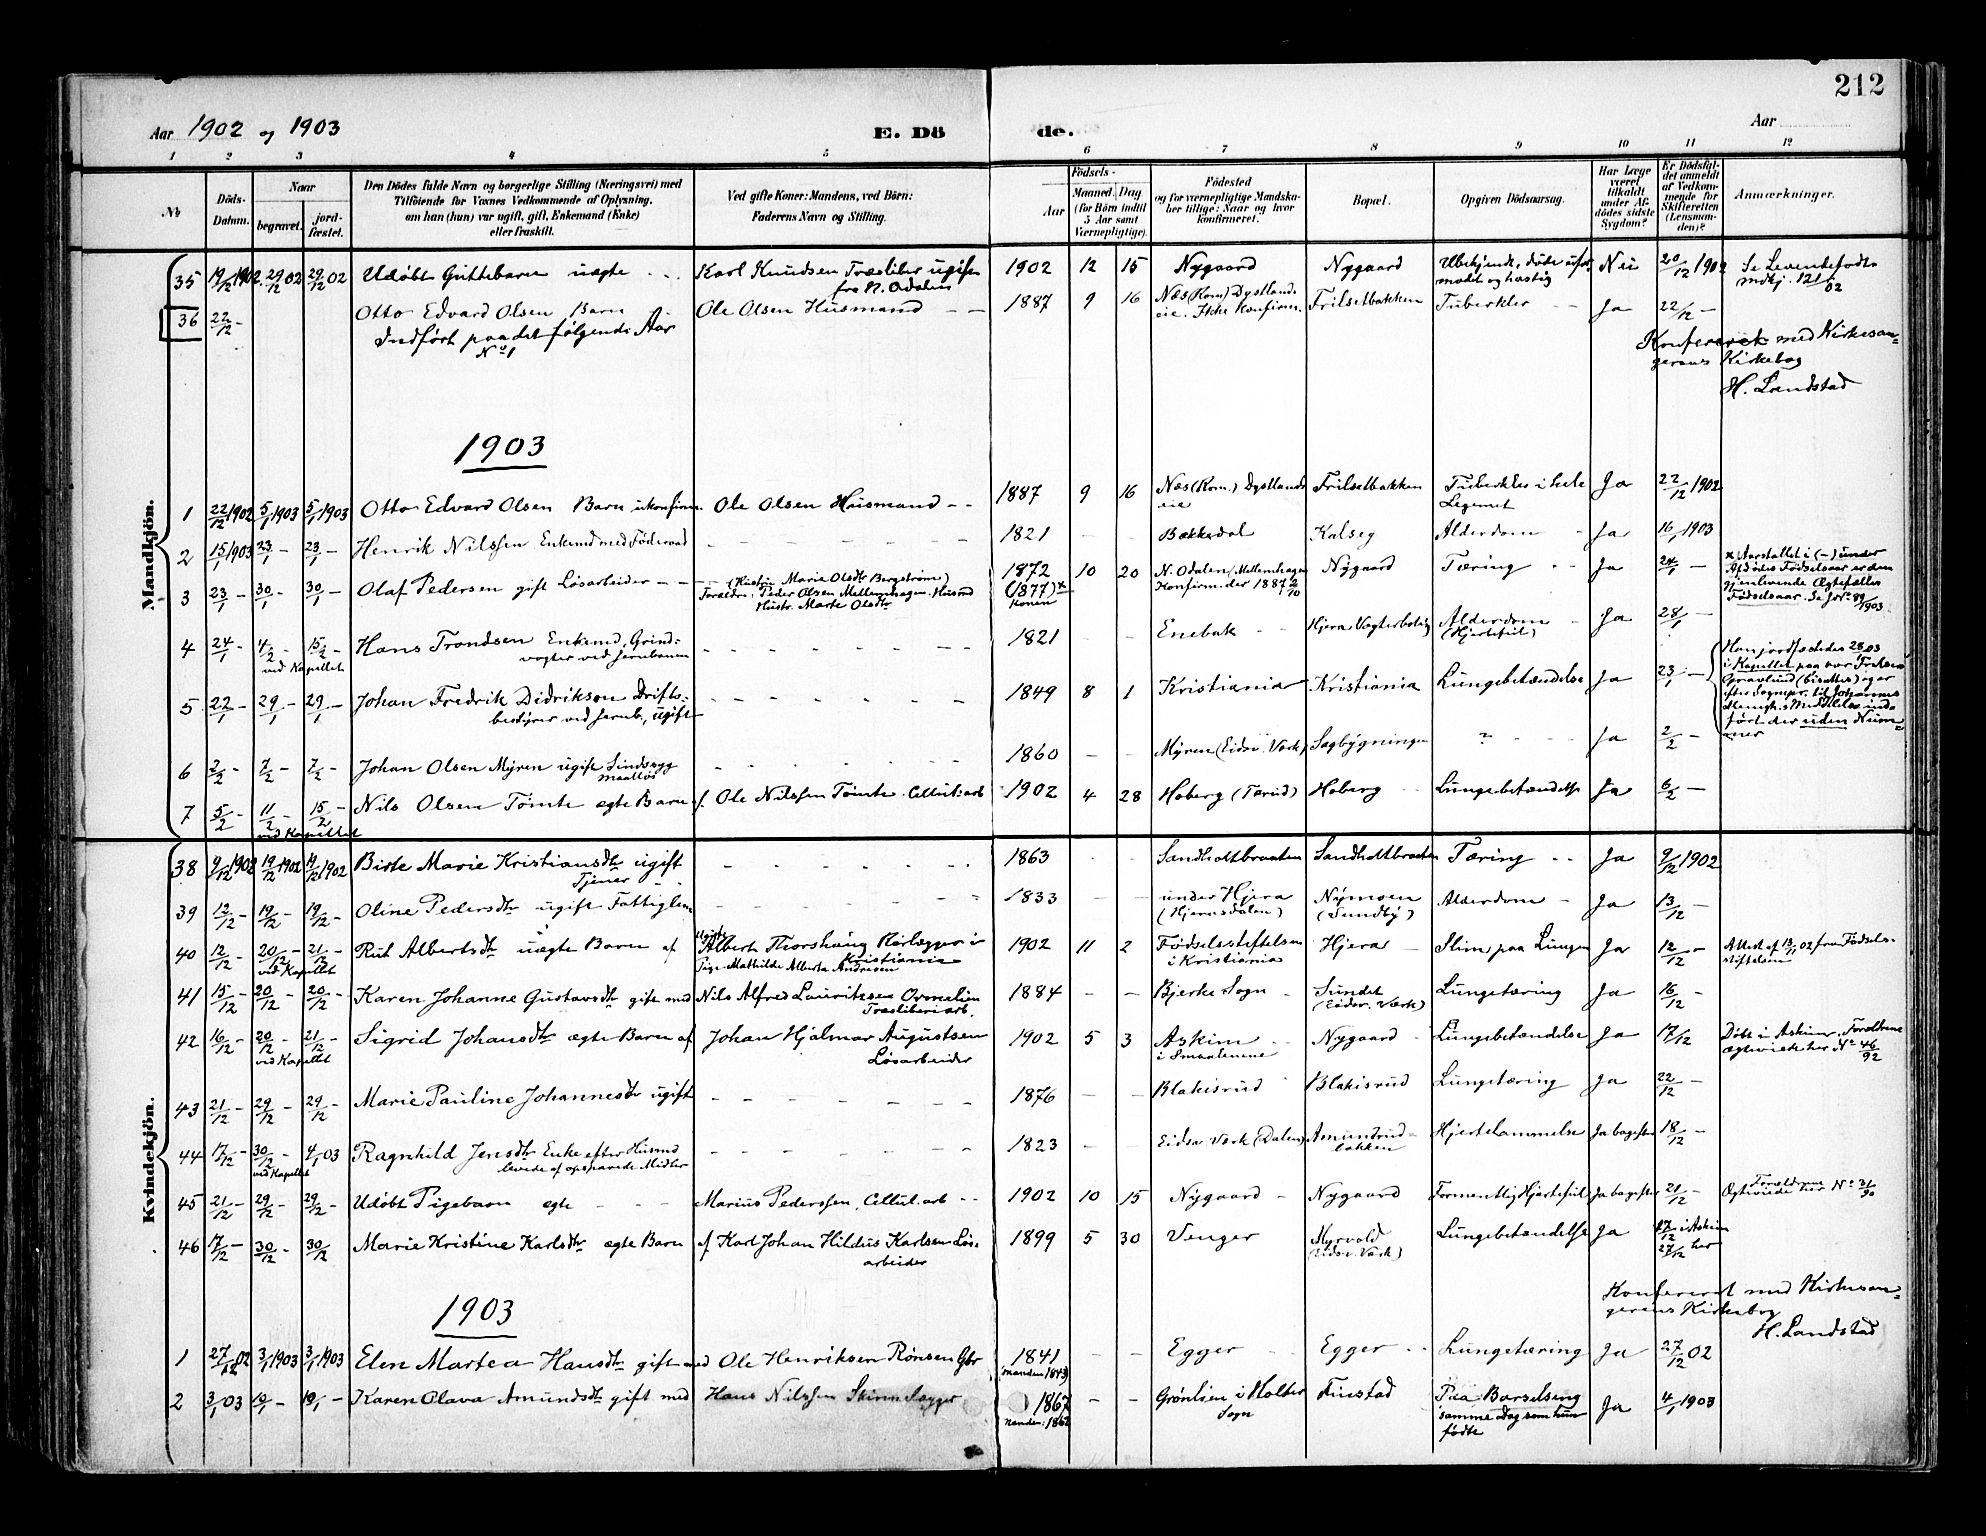 212
Aar 1902 og 1903
E. Dö
de.
Aar
1 2 3 4 5 6 7 8 9 10 11 12
№
Döds-Datum.
Naar
begravet.
jord-fæstet.
Den Dödes fulde Navn og borgerlige Stilling (Næringsvei) med
Tilföiende for Voxnes Vedkommende af Oplysning,
om han (hun) var ugift, gift, Enkemand (Enke)
eller fraskilt.
Ved gifte Koner: Mandens, ved Börn:
Faderens Navn og Stilling.
Födsels-
Aar
Maaned.
Dag
(for Börn indtil
5 Aar samt
Værnepligtige).
Födested
og for værnepligtige Mandska-
ber tillige: Naar og hvor
konfirmeret.
Bopæl.
Opgiven Dödsaarsag.
Har Læge
været
tilkaldt
under Af-
dödes sidste
Sygdom?
Er Dödsfal-
det anmeldt
af Vedkom-
mende for
Skifteretten
(Lensman-
den)?
Anmærkninger.
Mandkjön.
35 19/12 1902 29/12 02 29/12 02 Udøbt Guttebarn uægte Karl Knudsen Træsliber ugift 1902 12 15 Nygaard Nygaard Ubekjendt, døde Nei 20/12 1902 Se Levendefødte
fra N. Odalen
mdkj. 121/02
36 22/12 Otto Edvard Olsen Barn Ole Olsen Husmand 1887 9 16 Næs (Rom.) Dystlands- Frilsetbakken Tuberkler Ja 22/12
eie. Ikke Konfirm.
Indført paa det følgende Aar
No 1
Konfereret med Kirkesan-
gerens Kirkebog
H. Landstad
1903
1 22/12 1902 5/1 1903 5/1 1903 Otto Edvard Olsen Barn ukonfirm. Ole Olsen Husmand 1887 9 16 Næs (Rom.) Dystlands Frilsetbakken Tuberkler i hele Ja 22/12 1902
eie
Legemet
2 15/1 1903 23/1 23/1 Henrik Nilssen Enkemd med Føderaad 1821 Bækkedal Kalseg Alderdom Ja 16/1 1903
3 23/1 30/1 30/1 Olaf Pedersen gift Løsarbeider (Kristin Marie Olsdtr Bergstrøm) 1872 10 20 N. Odalen (Mellemhagen Nygaard Tæring Ja 24/1 * Aarstallet i (-) under
Forældre: Peder Olsen Mellemhagen. Husmd (1877)* Konfirm. der 1887 2/10
Afdødes Fødselsaar er den
Hustr. Marte Olsdtr Konen
gjenlevende Ægtefælles
Fødselsaar. Se J.No 89/1903
4 24/1 4/2 15/2 Hans Trondsen Enkemd, Grind- 1821 Enebak Hjera Vogterbolig Alderdom Ja 28/1
ved Kapellet
vogter ved Jernbanen
(Hjertefeil)
5 22/1 29/1 29/1 Johan Fredrik Didriksen Drifts- 1849 8 1 Kristiania Kristiania Lungebetændelse Ja 23/1
bestyrer ved Jernb., ugift
Han jordfæstedes 28/1 03
i Kapellet paa vor Frelsers
Gravlund (bisattes) igar
efter Sognepr. til Johannes
Menigh.s Meddelelse ind-
ført der uden Num-
mer
6 2/2 7/2 7/2 Johan Olsen Myren ugift Sindssyg 1860 Myren (Eidsv. Værk) Sagbygningen ? Ja 2/2
7 5/2 11/2 15/2 Nils Olsen Tømte ægte Barn af Ole Nilssen Tømte. Cellul: arb 1902 4 28 Hoberg (Tærud) Hoberg Lungebetændelse Ja 6/2
ved Kapellet
Kvindekjön.
38 9/12 1902 19/12 1902 19/12 1902 Birte Marie Kristiansdtr ugift 1863 Sandholtbraaten Sandholtbraaten Tæring Ja 9/12 1902
Tjener
39 12/12 19/12 19/12 Oline Pedersdtr ugift Fattiglem 1833 under Hjera Nymoen Alderdom Ja 13/12
(Hjernsdalen)
(Sundby)
40 12/12 20/12 21/12 Rut Albertsdtr uægte Barn af Ugift Albert Thorshaug Rørlægger i 1902 11 2 Fødselsstiftelsen Hjera Slim paa Lungen Ja 12/12 Attest af 13/11 02 fra Fødsels-
ved Kapellet
Kristiania
i Kristiania
stiftelsen
Pige Mathilde Alberta Andresen
41 15/12 20/12 20/12 Karen Johanne Gustavsdtr gift med Nils Alfred Lauritzsen Ornelien 1884 Bjerke Sogn Sundet Lungetæring Ja 16/12
Træsliberiarb.
(Eidsv. Værk)
42 16/12 20/12 21/12 Sigrid Johansdtr ægte Barn af Johan Hjalmar Augustsen 1902 5 3 Askim Nygaard Lungebetændelse Ja 17/12 Døbt i Askim. Forældrene
ved Kapellet
Løsarbeider
i Smaalenene
Ægteviede her No 46/92
43 21/12 29/12 29/12 Marie Pauline Johannesdtr ugift 1876 Blakisrud Blakisrud Lungetæring Ja 22/12
44 17/12 30/12 4/1 03 Ragnhild Jensdtr Enke efter Husmd 1823 Eidsv. Værk (Dalen) Amundrud- Hjertelammelse Ja bagefter 18/12
ved Kapellet
levede af opsparede Midler
bakken
45 21/12 29/12 29/12 Udøbt Pigebarn ægte Marius Pederssen, Cellul. arb 1902 10 15 Nygaard Nygaard Formentlig Hjertefeil Ja bagefter 21/12 Forældrene
Ægteviede her No 31/90
46 17/12 30/12 30/12 Marie Kristine Karlsdtr ægte Barn af Karl Johan Hildus Karlsen Løs- 1899 5 30 Venger Myrvold Lungebetændelse Ja 17/12 i Askim
arbeider
(Eidsv. Værk)
27/12 her
Konfereret med Kirkesan-
gerens Kirkebog
H. Landstad
1903
1 27/12 02 3/1 1903 3/1 1903 Elen Martea Hansdtr gift med Ole Henriksen Rønsen Gbr 1841 Egger Egger Lungetæring Ja 27/12 02
Manden 1843)
2 3/1 03 10/1 10/1 Karen Olava Amundsdtr gift med Hans Nilssen Skinnelægger 1867 Grønlien i Holter Finstad Paa Barselseng Ja 4/1 1903
Manden: 1862
Sogn
samme Dag som hun
fødte